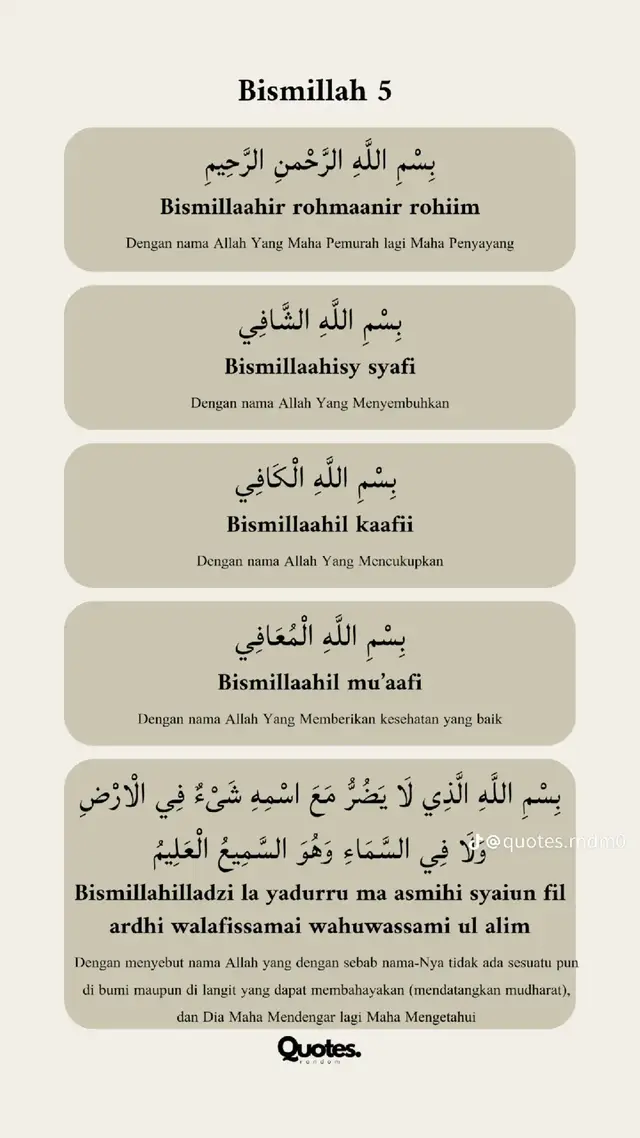 Bismillah 5
بِسْمِ اللَّهِ الرَّحْمنِ الرَّحِيمِ
Bismillaahir rohmaanir rohiim
Dengan nama Allah Yang Maha Pemurah lagi Maha Penyayang
بِسْمِ اللَّهِ الشَّافِي
Bismillaahisy syafi
Dengan nama Allah Yang Menyembuhkan
بِسْمِ اللَّهِ الْكَافِي
Bismillaahil kaafii
Dengan nama Allah Yang Mencukupkan
بِسْمِ اللَّهِ الْمُعَافِي
Bismillaahil mu’aafi
Dengan nama Allah Yang Memberikan kesehatan yang baik
بِسْمِ اللَّهِ الَّذِي لَا يَضُرُّ مَعَ اسْمِهِ شَىْءٌ فِي الْارْضِ
وَلَا فِي السَّمَاءِ وَهُوَ السَّمِيعُ الْعَلِيمُ
@quotes.rndm0
Bismillahilladzi la yadurru ma asmihi syaiun fil
ardhi walafissamai wahuwassami ul alim
Dengan menyebut nama Allah yang dengan sebab nama-Nya tidak ada sesuatu pun
di bumi maupun di langit yang dapat membahayakan (mendatangkan mudharat),
dan Dia Maha Mendengar lagi Maha Mengetahui
Quotes.
random